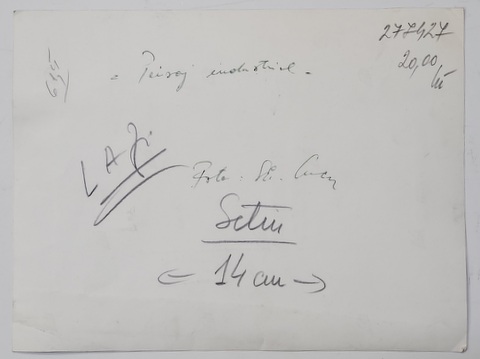 277427
20,00
lei
635
" Peisaj industrial "
LAJ.
Foto: St.
Setin
← 14 cm →